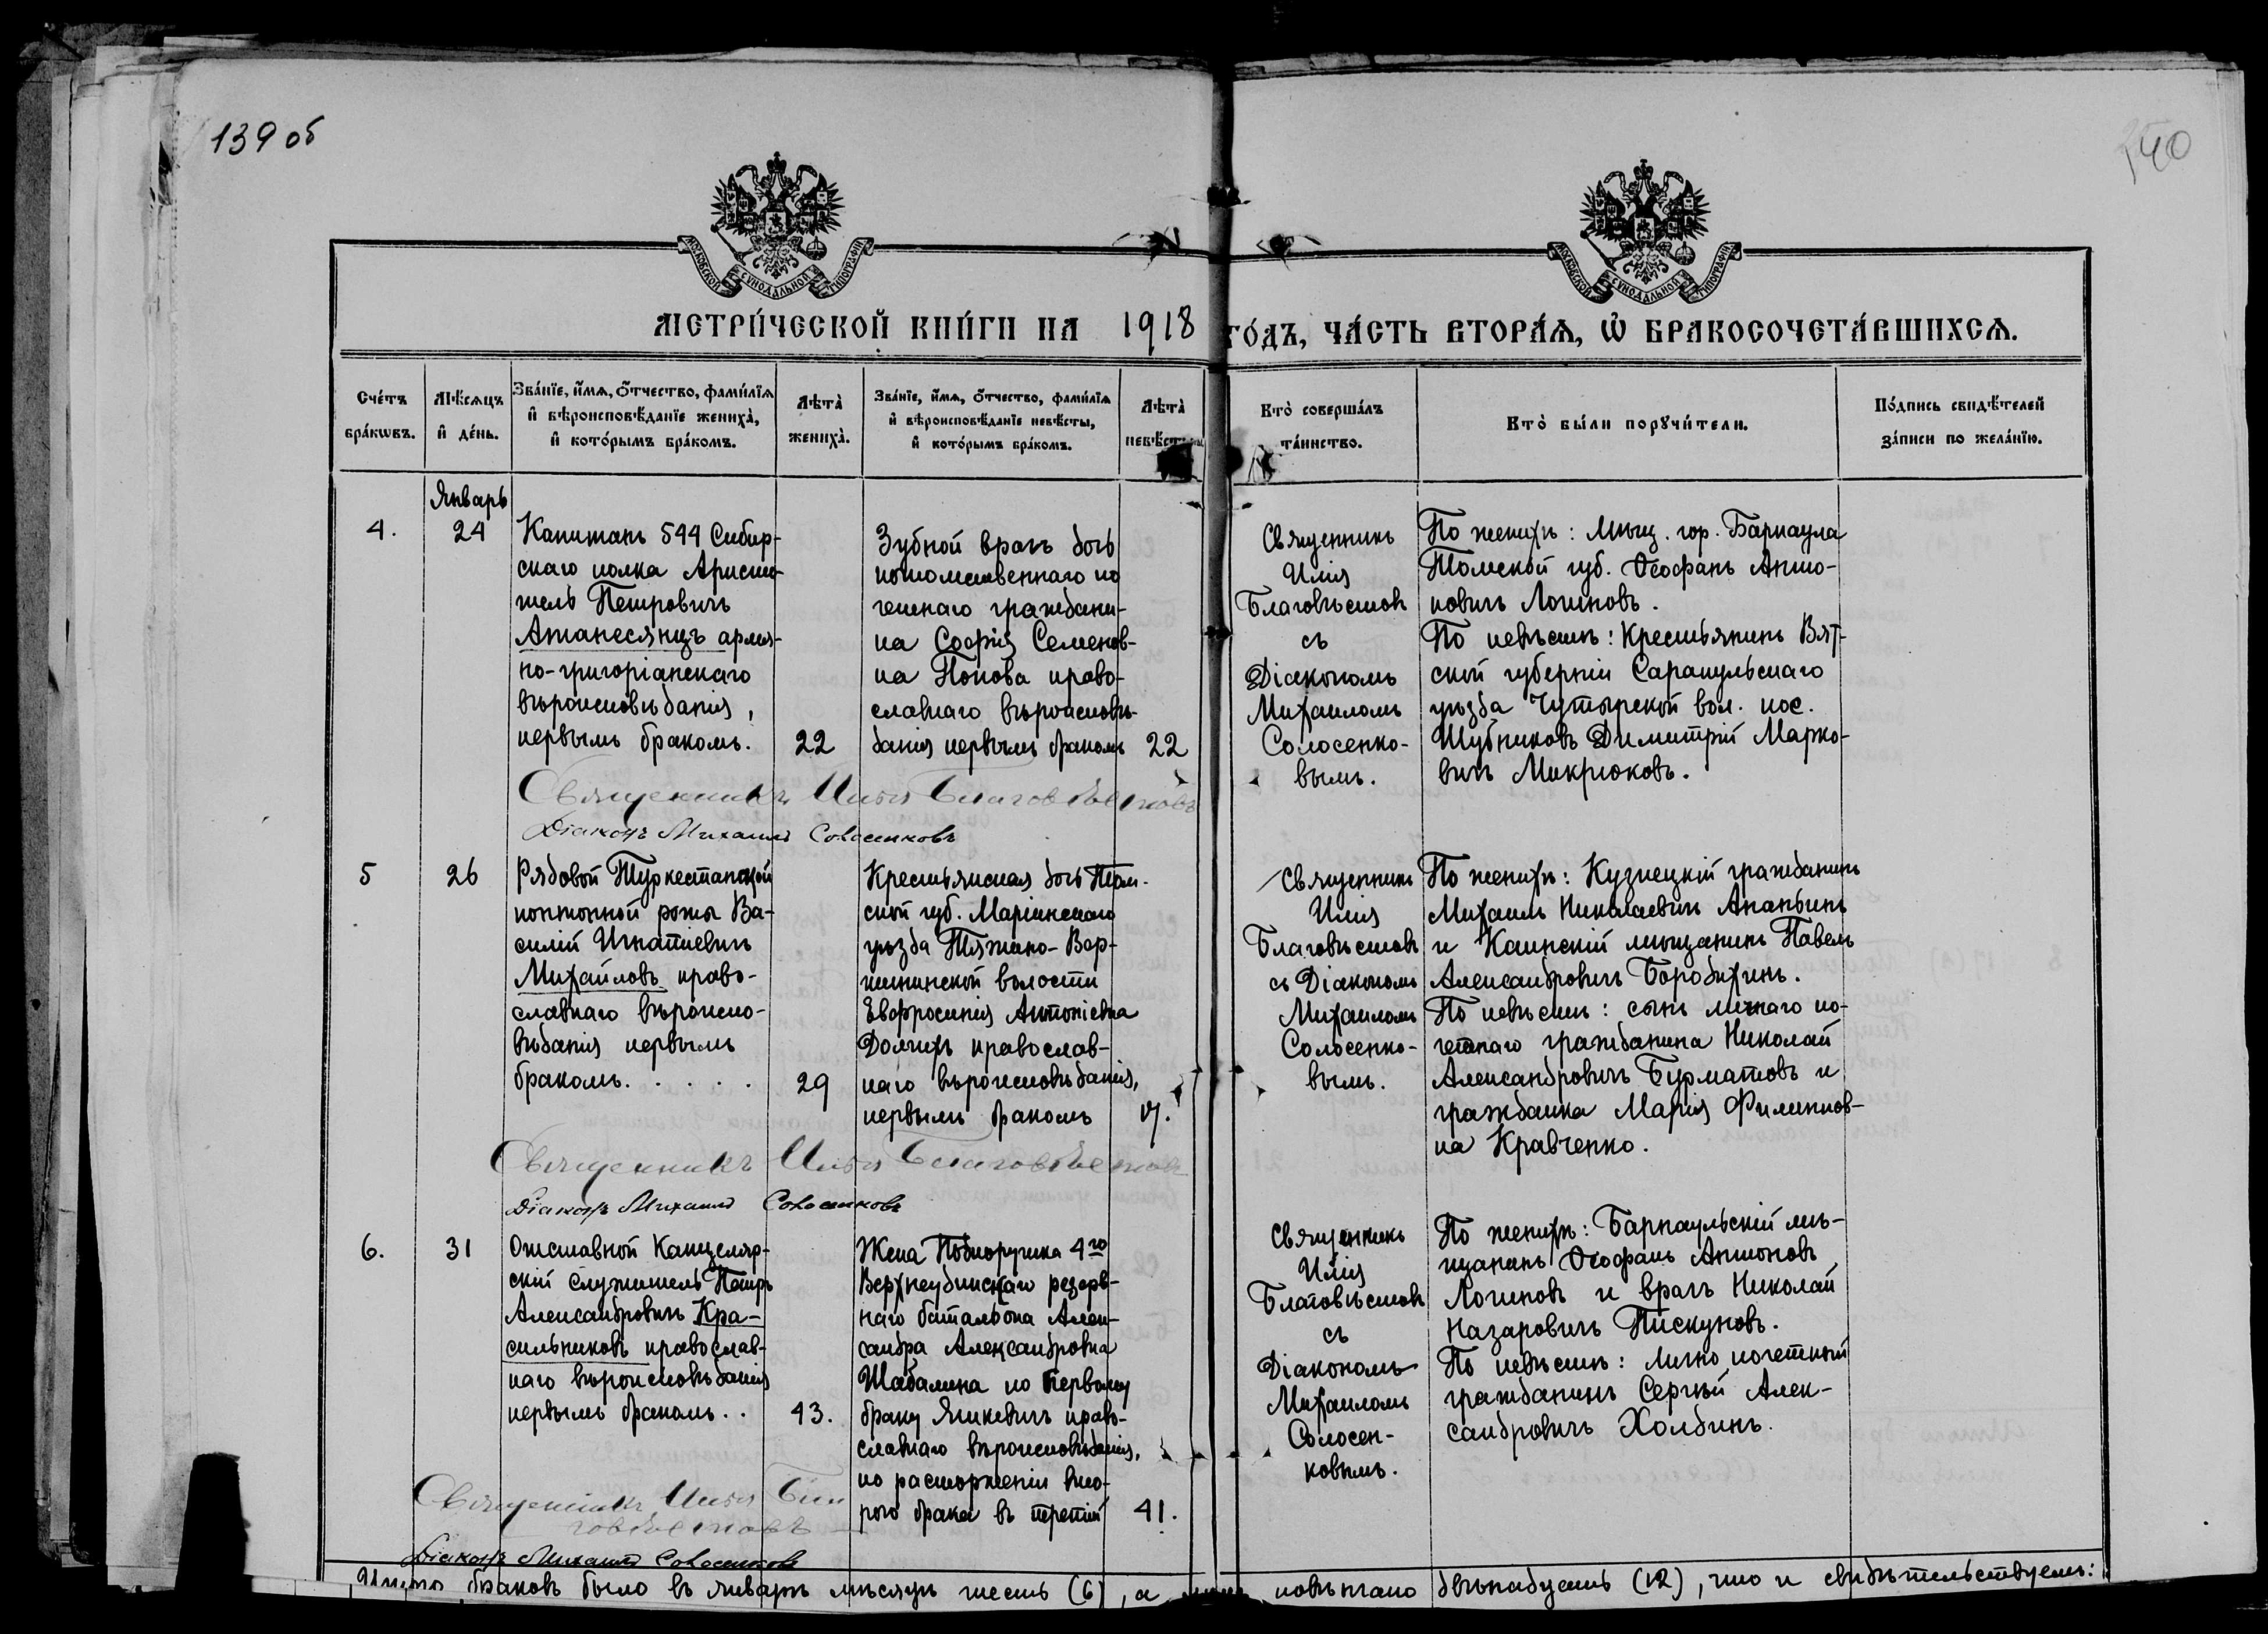 139 об
140
МОСКОВСКОЙ СУНОДАЛЬНОЙ ТИПОГРАФІИ
МОСКОВСКОЙ СУНОДАЛЬНОЙ ТИПОГРАФІИ
МЕТРИ́ЧЕСКОЙ КНИ́ГИ НА 1918 ГО́ДЪ, ЧА́СТЬ ВТОРА́Я, Ѡ БРАКОСОЧЕТА́ВШИХСЯ.
Сче́тъ
бра́кѡвъ.
Мѣ́сяцъ
и де́нь.
Зва́нїе, и́мя, ѻ́тчество, фами́лїя
и вѣроисповѣ́данїе жениха̀,
и кото́рымъ бра́комъ.
Лѣта̀
жениха̀.
Зва́нїе, и́мя, ѻ́тчество, фами́лїя
и вѣроисповѣ́данїе невѣ́сты,
и кото́рымъ бра́комъ.
Лѣта̀
невѣ́сты
Кто̀ соверша́лъ
та́инство.
Кто̀ бы́ли порꙋчи́тели.
По́дпись свидѣ́телей
за́писи по жела́нїю.
Январь
4.
24
Капитанъ 544 Сибир-
скаго полка Аристо-
тель Петровичъ
Атанесянцъ армя-
но-григоріанскаго
вѣроисповѣданія,
первымъ бракомъ.
22
Зубной врачъ дочь
потомственнаго по
четнаго граждани-
на Софія Семенов-
на Попова право-
славнаго вѣроисповѣ-
данія первымъ бракомъ
22
Священникъ
Илія
Благовѣстовъ
съ
Діакономъ
Михаиломъ
Солосенко-
вымъ.
По женихѣ: Мѣщ. гор. Барнаула
Томской губ. Ѳеофанъ Анто-
новичъ Логиновъ.
По невѣстѣ: Крестьянинъ Вят-
ской губерніи Сарапульскаго
уѣзда Чутырской вол. пос.
Шубниковъ Димитрій Марко-
вичъ Микрюковъ.
Священникъ Илья Благовѣстовъ
Діаконъ Михаилъ Солосенковъ
5
26
Рядовой Туркестанской
понтонной роты Ва-
силій Игнатіевичъ
Михайловъ право-
славнаго вѣроиспо-
вѣданія первымъ
бракомъ. . . . .
29
Крестьянская дочь Том-
ской губ. Маріинскаго
уѣзда Тяжино-Вер-
шининской волости
Евфросинія Антоніевна
Долгихъ православ-
наго вѣроисповѣданія,
первымъ бракомъ
Священникъ
Илія
Благовѣстовъ
съ Діакономъ
Михаиломъ
Солосенко-
вымъ.
По женихѣ: Кузнецкій гражданинъ
Михаилъ Николаевичъ Ананьинъ
и Каинскій мѣщанинъ Павелъ
Александровичъ Бородихинъ.
По невѣстѣ: сынъ личнаго по-
четнаго гражданина Николай
Александровичъ Бурматовъ и
гражданка Марія Филиппов-
на Кравченко.
Священникъ Илья Благовѣстовъ
Діаконъ Михаилъ Солосенковъ
6.
31
Отставной Канцеляр-
скій служитель Петръ
Александровичъ Кра-
сильниковъ православ-
наго вѣроисповѣданія
первымъ бракомъ. .
43.
Жена Подпоручика 4го
Верхнеудинскаго резерв-
наго баталіона Алек-
сандра Александровна
Шабалина по первому
браку Яцкевичъ право-
славнаго вѣроисповѣданія,
по расторженіи вто-
рого брака въ третій
41.
Священникъ
Илія
Благовѣстовъ
съ
Діакономъ
Михаиломъ
Солосен-
ковымъ.
По женихѣ: Барнаульскій мѣ-
щанинъ Ѳеофанъ Антоновъ
Логиновъ и врачъ Николай
Назаровичъ Пискуновъ.
По невѣстѣ: лично почетный
гражданинъ Сергѣй Алек-
сандровичъ Холдинъ.
Священникъ Илья Благо
говѣстовъ
Діаконъ Михаилъ Солосенковъ
Итого браковъ было въ январѣ мѣсяцѣ шесть (6), а повѣнчано двѣнадцать (12), что и свидѣтельствуемъ: